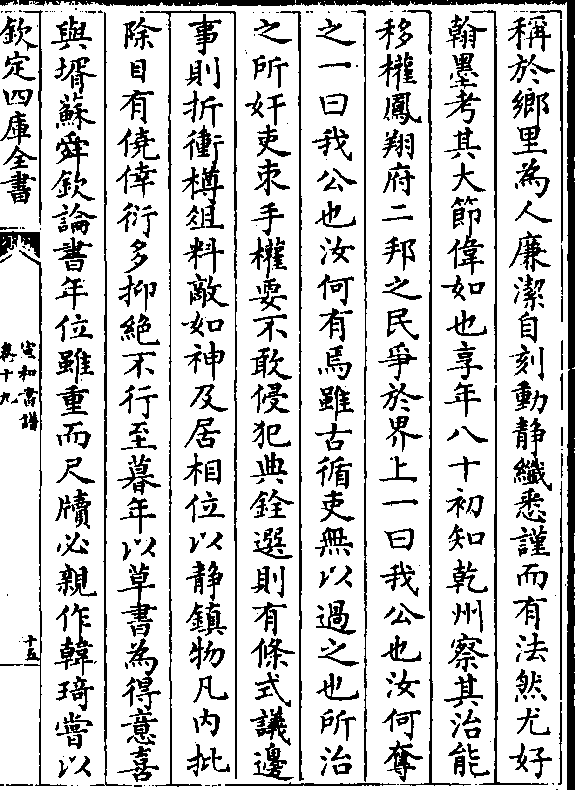 稱於鄉里為人廉潔自刻動静纎悉謹而有法然尤好
翰墨考其大節偉如也享年八十初知乾州察其治能
移權鳳翔府二邦之民爭於界上一曰我公也汝何奪
之一曰我公也汝何有焉雖古循吏無以過之也所治
之所奸吏束手權要不敢侵犯典銓選則有條式議邊
事則折衝樽俎料敵如神及居相位以静鎮物凡内批
除目有僥倖衍多抑絶不行至暮年以草書為得意喜
與壻蘇舜欽論書年位雖重而尺牘必親作韓琦嘗以
欽定四庫全書
宣和書譜
卷十九
十五